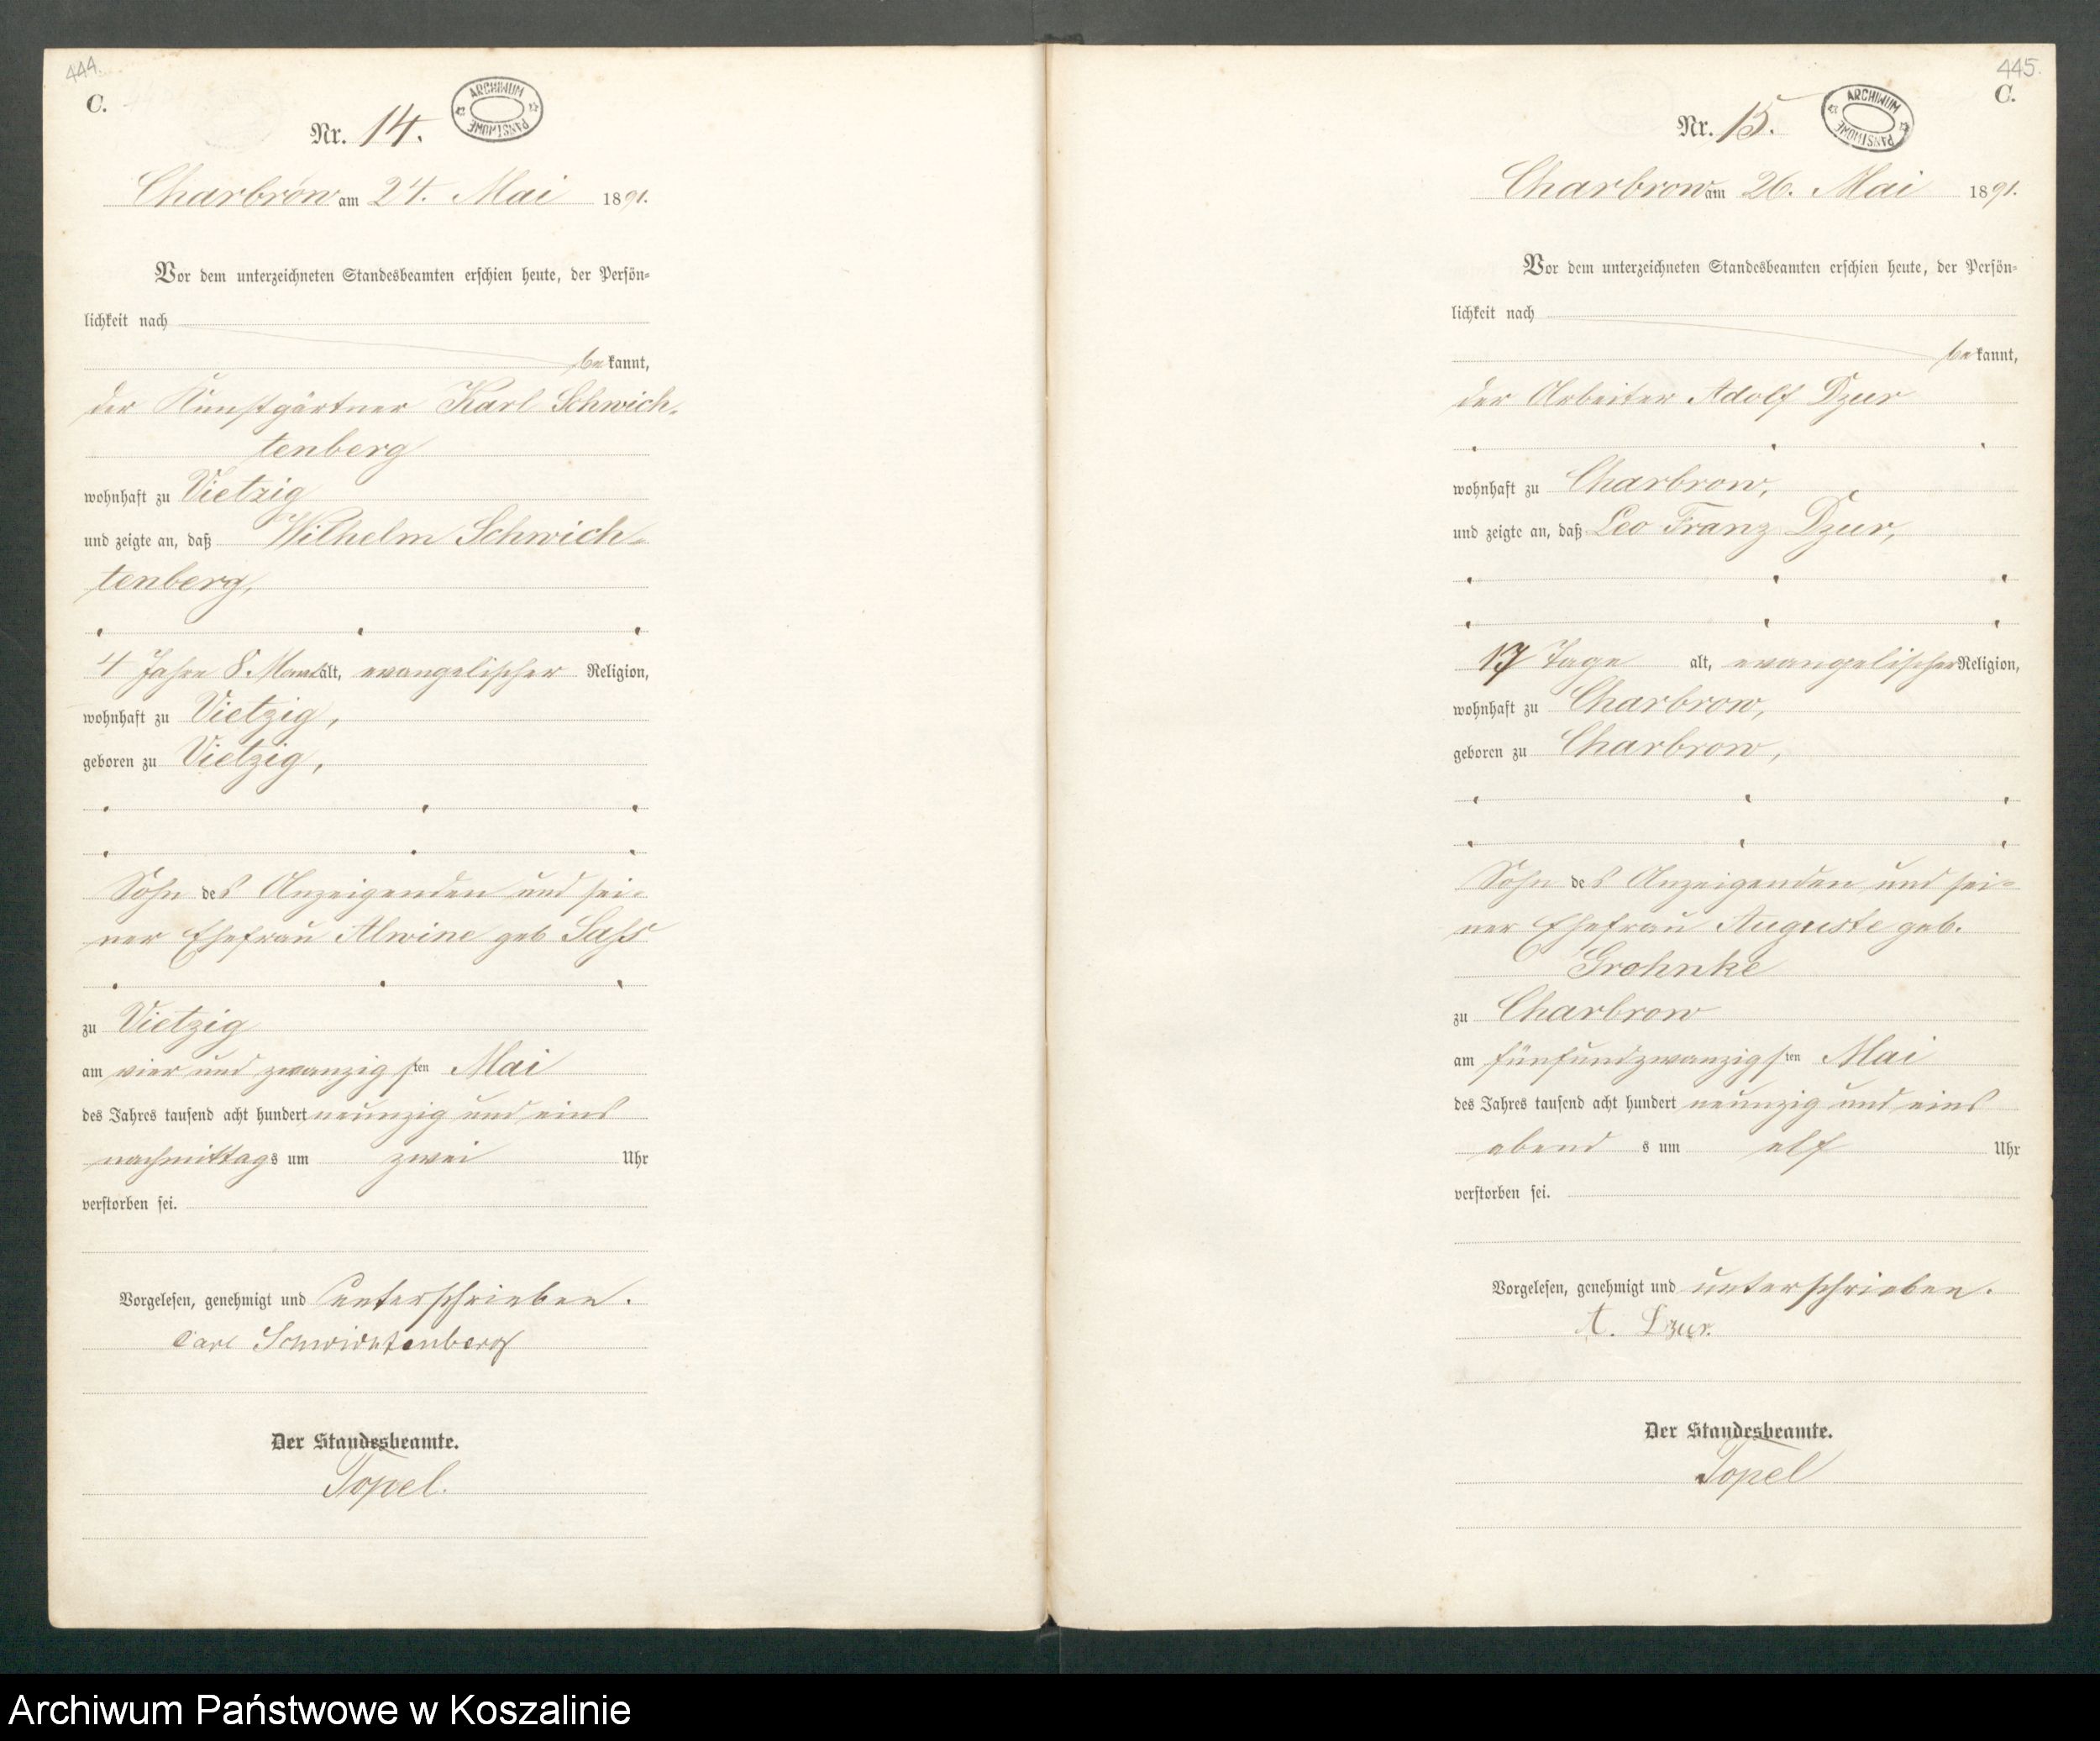 444.
C.
Nr. 14.
ARCHIWUM PAŃSTWOWE
Charbrow am 24. Mai 1891.
Vor dem unterzeichneten Standesbeamten erschien heute, der Persön-
lichkeit nach
bekannt,
der Kunstgärtner Karl Schwich-
tenberg
wohnhaft zu Vietzig
und zeigte an, daß Wilhelm Schwich-
tenberg,
4 Jahre 8 Monat alt, evangelischer Religion,
wohnhaft zu Vietzig,
geboren zu Vietzig,
Sohn des Anzeigenden und sei-
ner Ehefrau Alwine geb Saß
zu Vietzig
am vier und zwanzigsten Mai
des Jahres tausend acht hundert neunzig und eins
nachmittags um zwei Uhr
verstorben sei.
Vorgelesen, genehmigt und unterschrieben.
Carl Schwichtenberg
Der Standesbeamte.
Topel.
445.
C.
Nr. 15.
ARCHIWUM PAŃSTWOWE
Charbrow am 26. Mai 1891.
Vor dem unterzeichneten Standesbeamten erschien heute, der Persön-
lichkeit nach
bekannt,
der Arbeiter Adolf Dzur
wohnhaft zu Charbrow,
und zeigte an, daß Leo Franz Dzur,
17 Tage alt, evangelischer Religion,
wohnhaft zu Charbrow,
geboren zu Charbrow,
Sohn des Anzeigenden und sei-
ner Ehefrau Auguste geb.
Grohnke
zu Charbrow
am fünfundzwanzigsten Mai
des Jahres tausend acht hundert neunzig und eins
abends um elf Uhr
verstorben sei.
Vorgelesen, genehmigt und unterschrieben.
A. Dzur.
Der Standesbeamte.
Topel
Archiwum Państwowe w Koszalinie